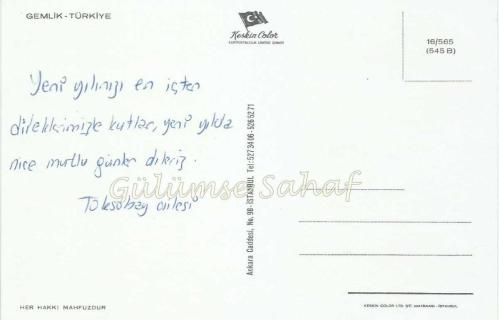 GEMLİK-TÜRKİYE
Keskin Color
KARTPOSTALCILIK LİMİTED ŞİRKETİ
16/565
(545 B)
Yeni yılınızı en içten
dileklerimizle kutlar, yeni yılda
nice mutlu günler dileriz.
Gülümse Sahaf
Toksöbay ailesi
Ankara Caddesi, No. 98-İSTANBUL Tel: 5273406-5265271
HER HAKKI MAHFUZDUR
KESKİN COLOR LTD. ŞTİ. MATBAASI-İSTANBUL